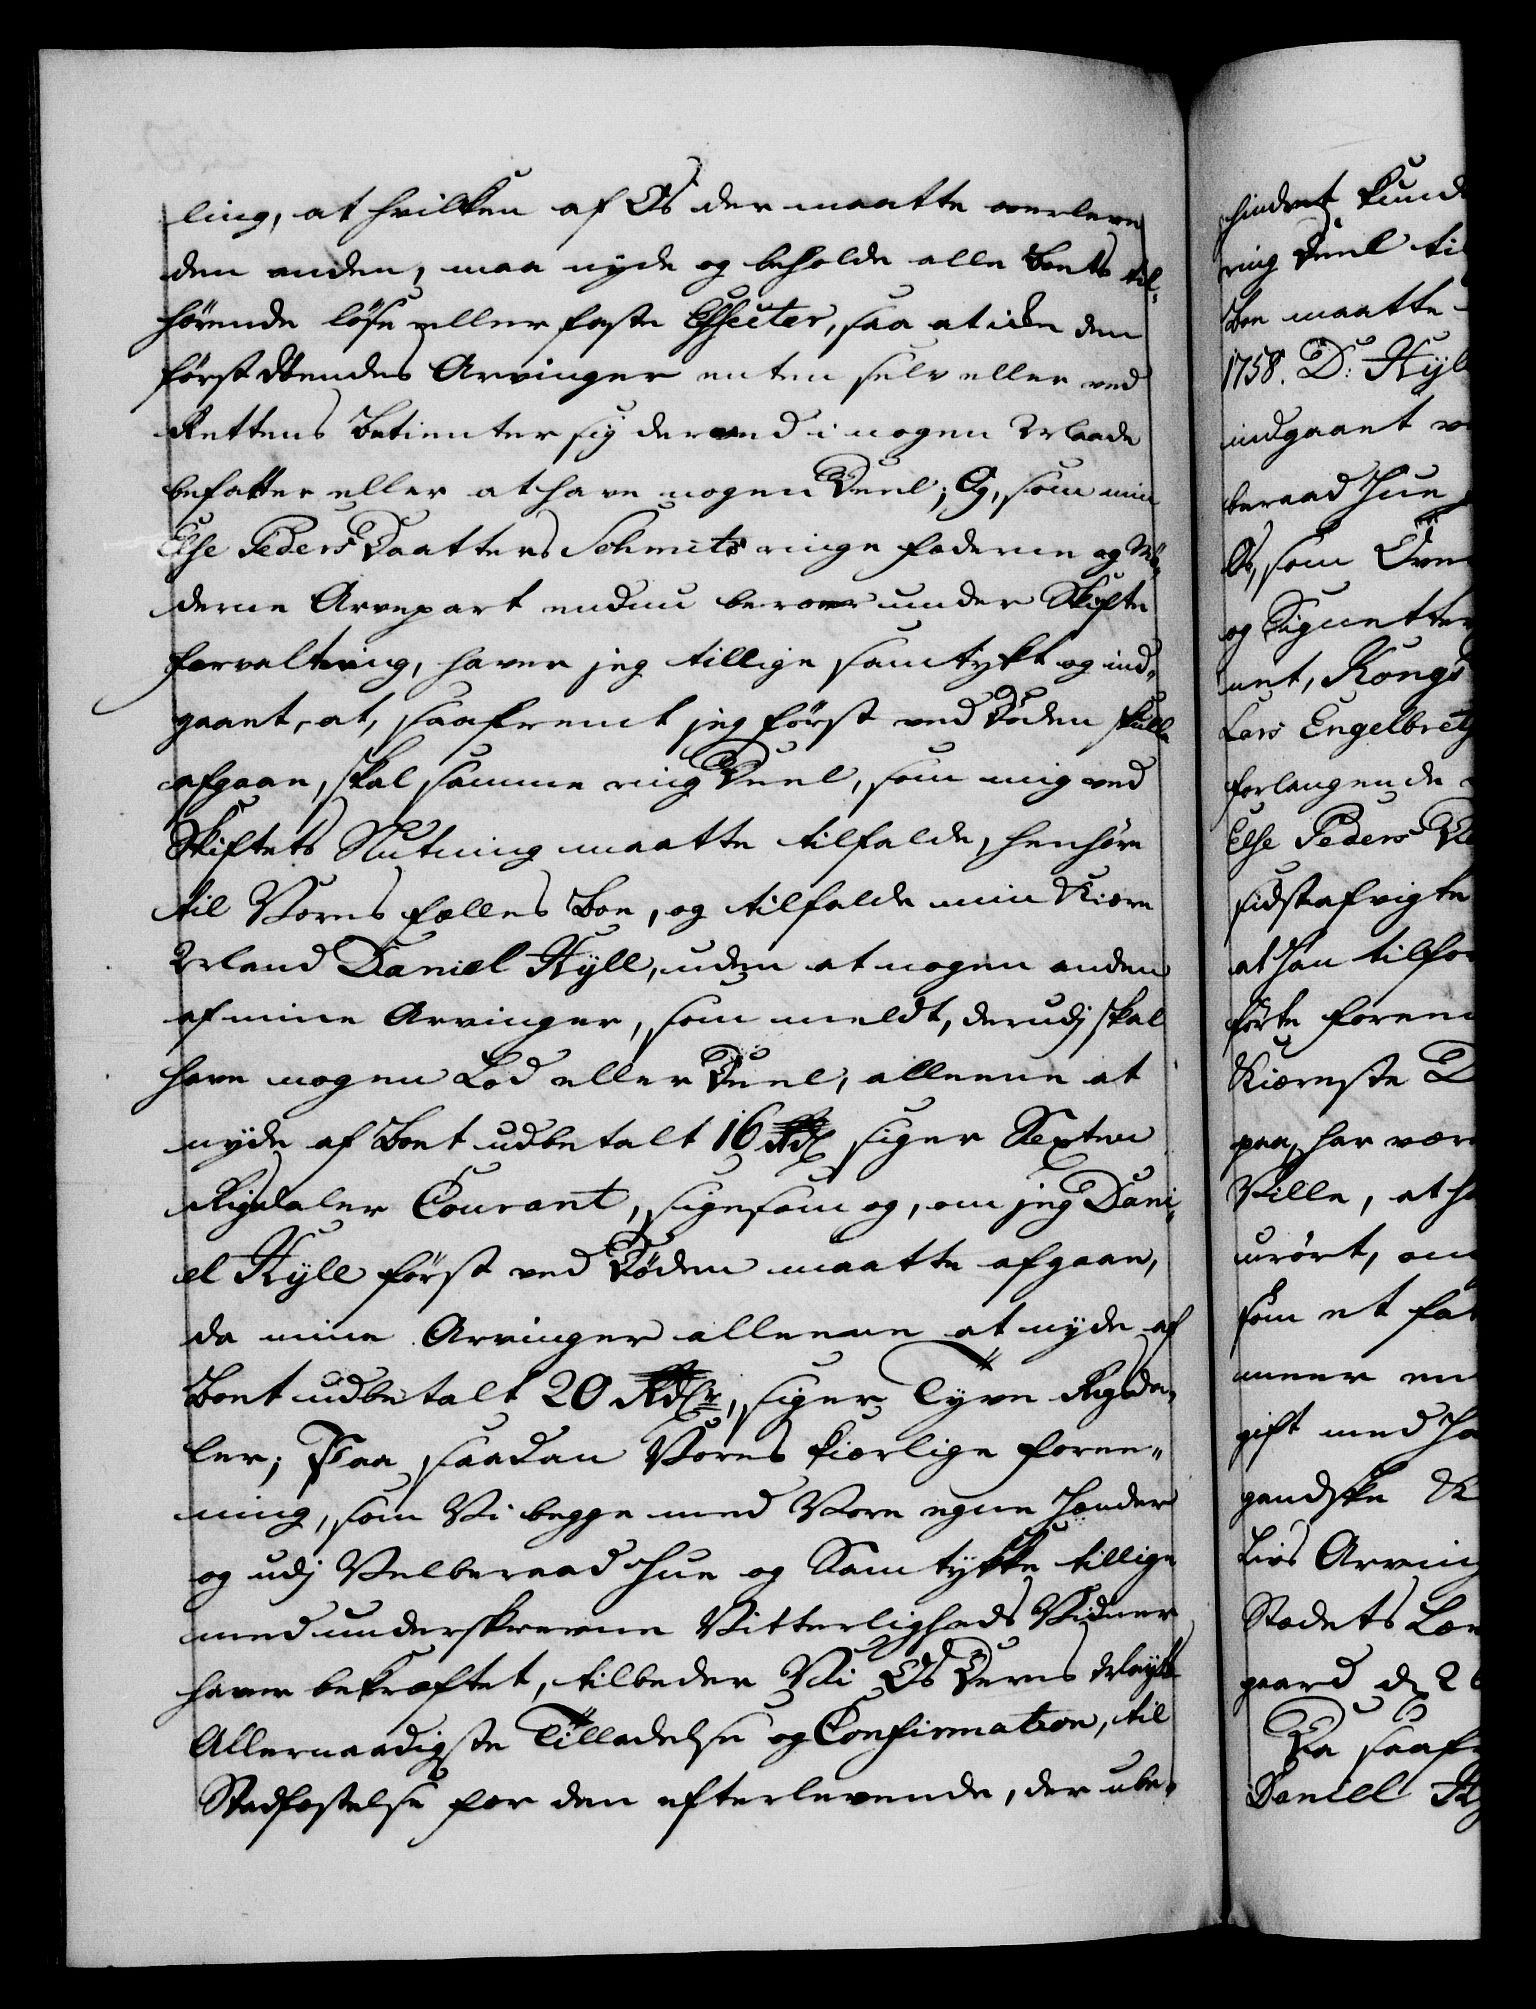 ling, at hvilken af Os der maatte overleve
den anden, maa nyde og beholde alle Boets til-
hørende løse eller faste Effecter, saa at icke den
først døendes Arvinger enten selv eller ved
Rettens Betienter sig dermed i nogen Maade
befatter eller at have nogen Deel; Og, som min
Else Peders Daatters Schmits ringe fæderne og Mø-
derne Arvepart endnu beroer under Skifte
forvaltning, haver jeg tillige samtykt og ind-
gaaet, at, saafremt jeg først ved Døden skulle
afgaae, skal samme ring Deel, som mig ved
Skiftets Slutning maatte tilfalde, henhøre
til Vores fælles Boe, og tilfalde min Kiære
Mand Daniel Kyll, uden at nogen anden
af mine Arvinger, som meldt, derudj skal
have nogen Lod eller Deel, alleene at
nyde af Boet udbetalt 16 Rdl siger Sexten
Rigsdaler Courant, ligesom og, om jeg Dani-
el Kyll først ved Døden maatte afgaae,
da mine Arvinger alleene at nyde af
Boet udbetalt 20 Rdlr, siger Tyve Rigsda-
ler; Paa saadan Vores kiærlige Foree-
ning, som Vi begge med Vore egne Hænder
og udj Velberaad Hue og Samtykke tillige
med underskrevne Vitterligheds Vidner
haver bekræftet, tilbeder Vi Os Deres Mayts
Allernaadigste Tilladelse og Confirmation, til
Stadfæstelse for den efterlevende, der ube-
hindret kunde
ring Deel til
Boe maatte
1758. D: Kyl
indgaaet
beraad Hue
Os, som Over
og Signetter
net, Kongs
Lars Engelbretz
forlangende
Else Peders
sidst afvigte
at Han tilfor
førte foren
Kiæreste D
paa, har være
Ville, at h
urørt, om
som et fæ
meer en
gift med Ha
gandske
Livs Arving
Stædets
gaard d. 2
Da saaf
Daniel Ky